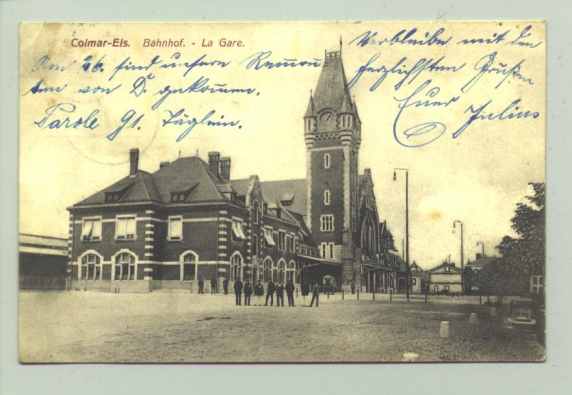 Colmar-Els. Bahnhof. - La Gare.
Am 26. sind unsere Remon
ten von D. gekommen.
Parole 91. Täglein.
Verbleibe mit den
herzlichsten Grüßen
Euer Julius